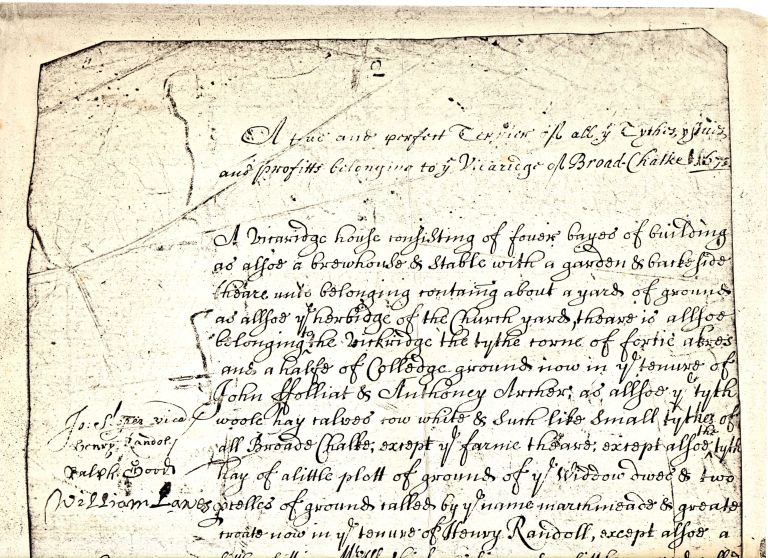 A true and perfect Terrier of all yͤ Tythes
and profitts belonging to yͤ Vicaridge of Broad-Chalke 167
A Vicaridge house consisting of fower bayes of building
as allsoe a brewhouse & stable with a garden & backeside
theare unto belonging containg about a yard of ground
as allsoe yͤ herbidge of the Church yard, theare is allsoe
belonging to the Vickridge the tythe corne of fortie akres
and a halfe of Colledge ground now in yͤ tenure of
John ffolliat & Anthoney Archer; as allsoe yͤ tyth
woole hay calves cow white & such like small tythes of
all Broade Chalke, except yͤ farme theare, except alsoe the tyth
hay of alittle plott of ground of yͤ Widdow owes & two
of ground called by yͤ name marchmeade & greate
now in yͤ tenure of Henry Randoll, except alsoe a
vicar
Henry Randol
Ralph Good
William Lawes